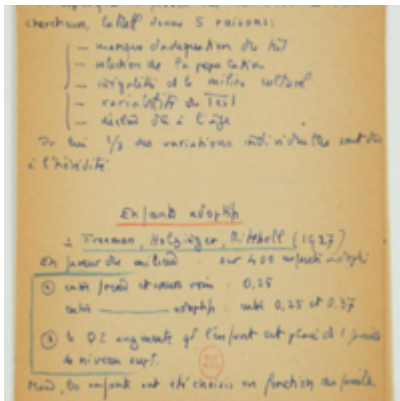 chercheurs, Cattell donne 5 raisons:
– manque d'adéquation du test
– sélection de la population
– inégalité du milieu culturel
– variabilité du Test
– déclin dû à l'âge
Pr lui 2/3 des variations individuelles sont dûs
à l'hérédité
Enfants adoptifs
: Freeman, Holzinger, Mitchell (1927)
En faveur du milieu sur 400 enfants adoptifs
① entre frères et sœurs : 0,25
entre ——— adoptifs : entre 0,25 et 0,37
② le QI augmente qd l'enfant est placé ds 1 famille
de niveau supr.
Mais, les enfants ont été choisis en fonction